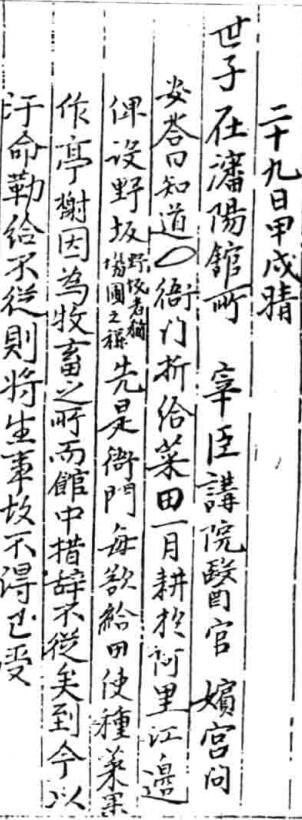 二十九日甲戌晴
世子在瀋陽館所 宰臣講院醫官 嬪宮問
安答曰知道○衙门折給菜田一月耕於河里江邉
俾設野坂野坂者猶場圃之稱先是衙門每欲給田使種菜果
作亭榭因為牧畜之所而館中措辞不従矣到今以
汗命勒給不從則将生事故不得已受